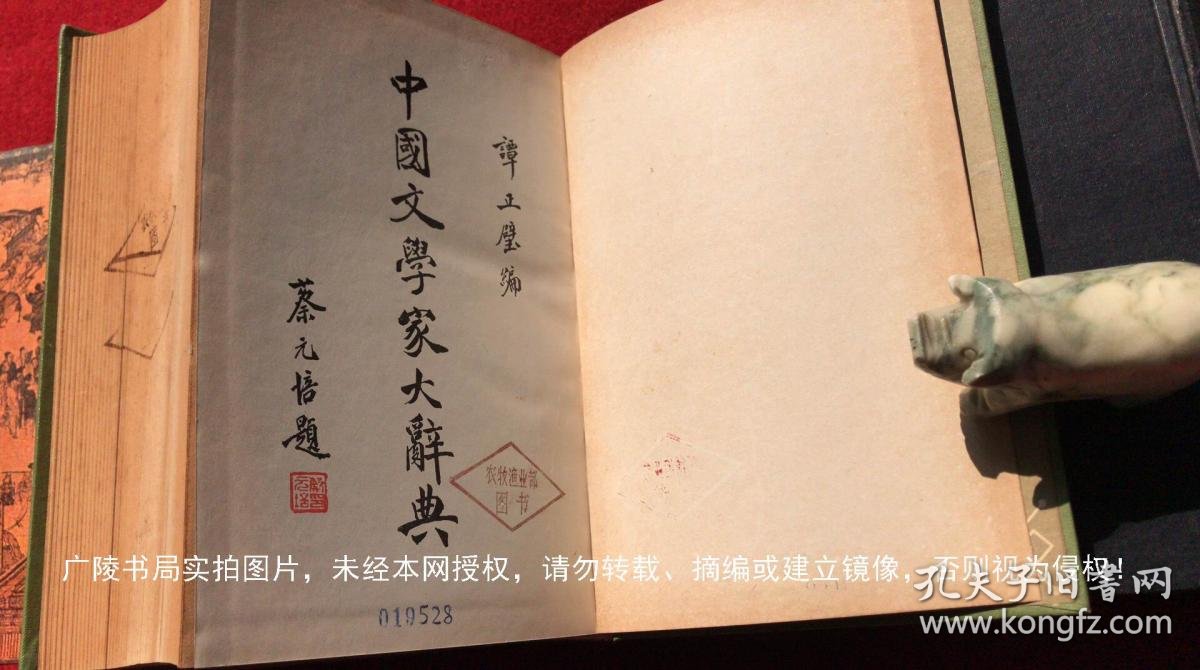 譚正璧編
中國文學家大辭典
蔡元培題
农牧渔业部
图书
019528
广陵书局实拍图片，未经本网授权，请勿转载、摘编或建立镜像，否则视为侵权！
孔夫子旧書网
www.kongfz.com